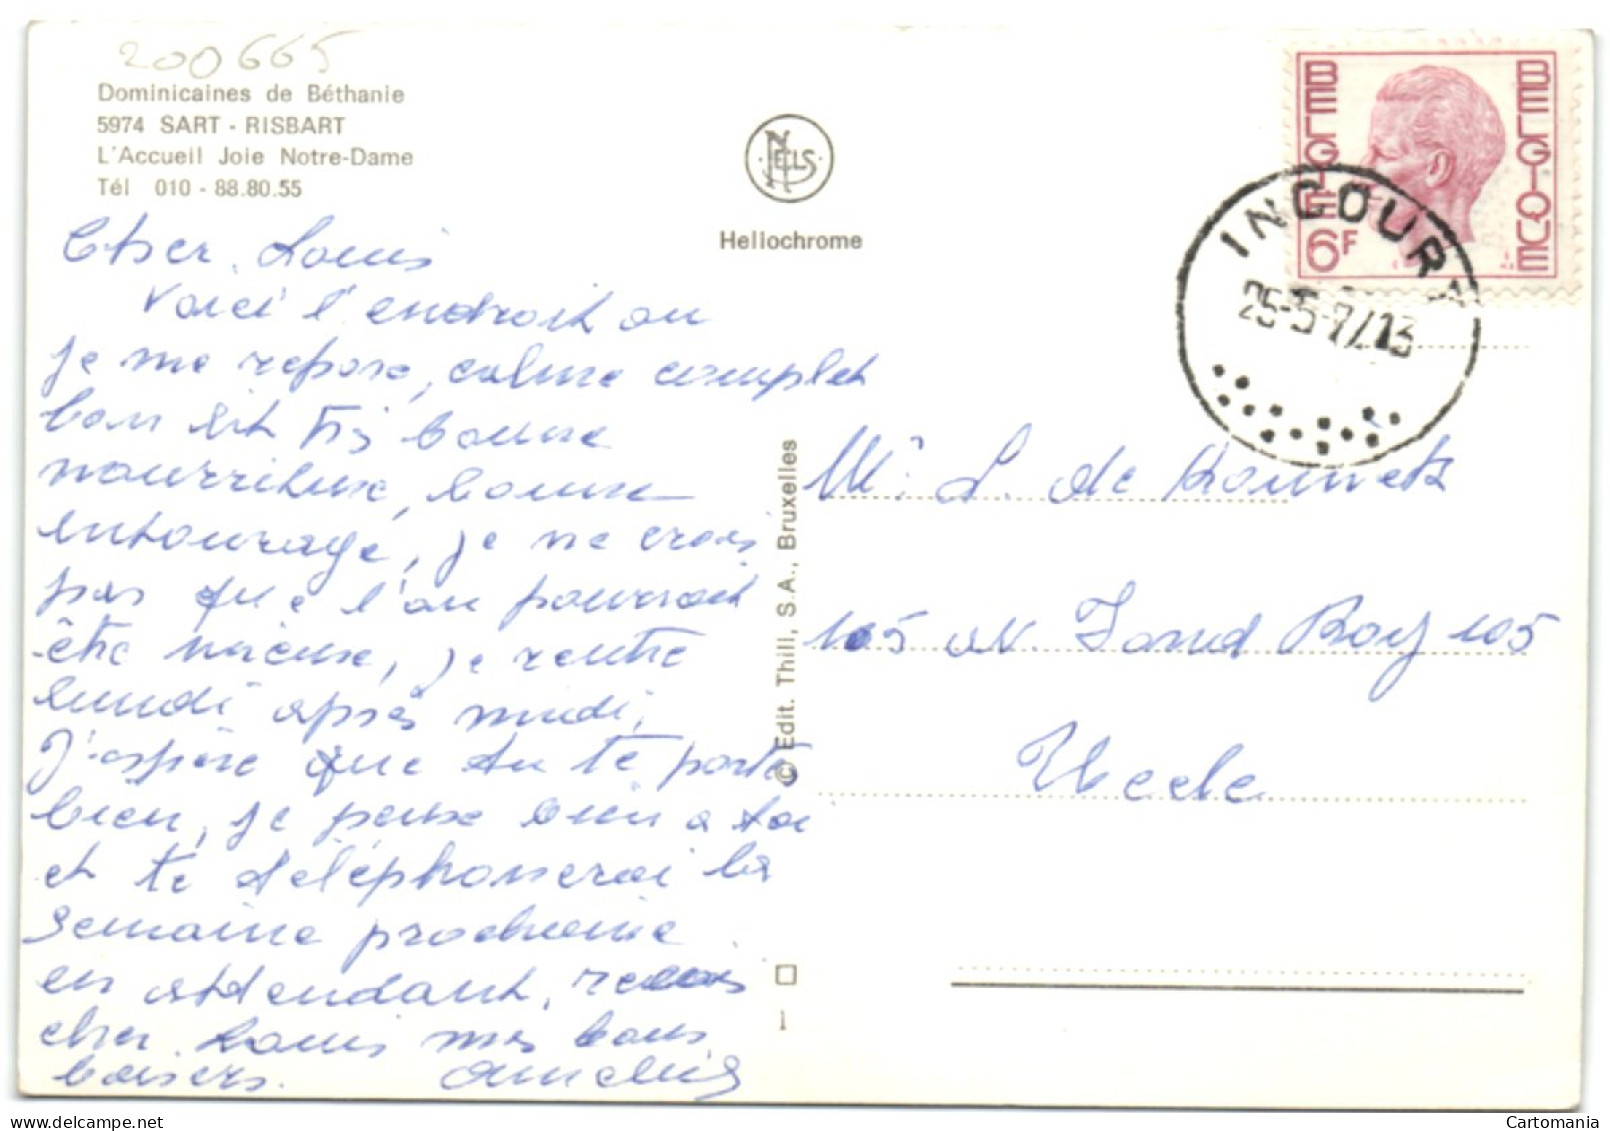 200665
Dominicaines de Béthanie
5974 SART - RISBART
L'Accueil Joie Notre-Dame
Tél 010 - 88.80.55
NELS
Heliochrome
BELGIE
BELGIQUE
6F
INCOURT
25-5-7 / 13
Cher Louis
Voici l'endroit ou
je me repose, calme complet
bon lit bonne
nourriture, bonne
entourage, je ne crois
pas que l'on pourrait
être mieux, je rentre
lundi après midi,
J'espère que tu te porte
bien, je pense bien a toi
et te téléphonerai la
semaine prochaine
en attendant, recois
cher Louis mes bons
baisers.
© Edit. Thill, S.A., Bruxelles
Mr L. de
105 av. Roy 105
Uccle
Cartomania